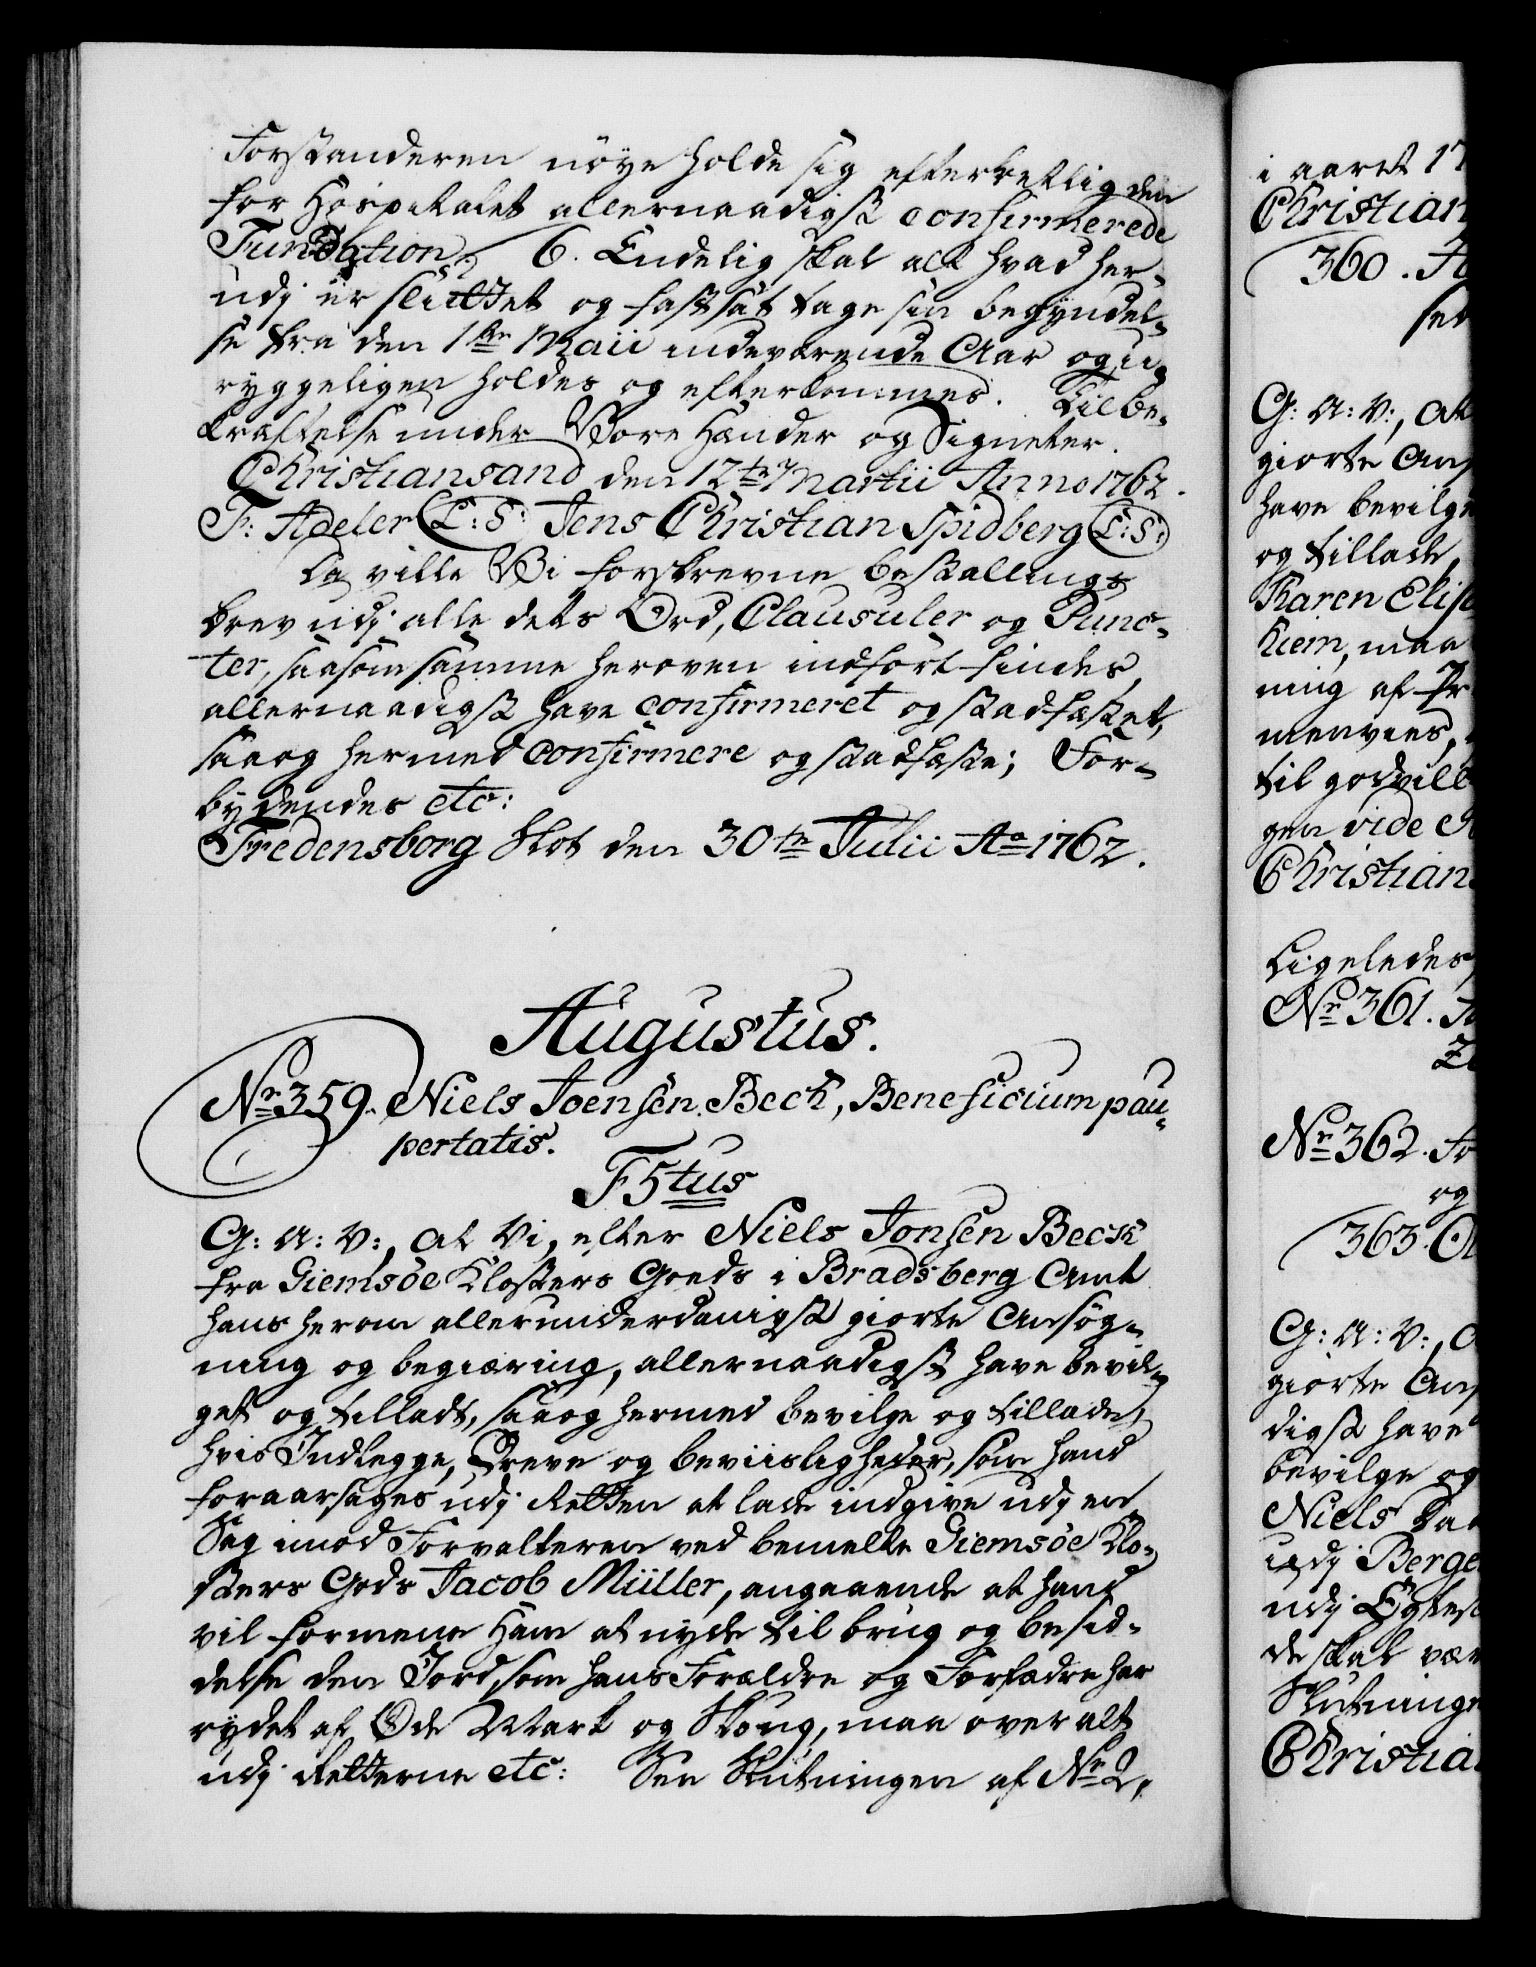 Forstanderen nöye holde sig efterretlig den
for Hospitalet allernaadigst confirmerede
Fundation. 6. Endelig skal alt hvad her-
udj er sluttet og fastsat tage sin begyndel-
se fra den 1ste Maii indeværende Aar og u-
ryggeligen holdes og efterkommes. Til be-
kræftelse under Vore Hænder og Signeter.
Christiansand den 12te Martii Anno 1762.
F: Adeler L:S: Jens Christian Spidberg L:S:
Da ville Vi forskrevne bestallings
brev udj alle dets Ord, Clausuler og Punc-
ter, saasom samme heroven indfört findes,
allernaadigst have confirmeret og stadfæstet,
saa og hermed confirmere og stadfæste; For-
bydendes etc:
Fredensborg Slot den 30te Julii Ao 1762.
Augustus.
Nr 359. Niels Joensen Beck, Beneficium pau-
pertatis.
F 5tus
G: A: V:, at Vi, efter Niels Jonsen Beck
fra Giemsöe Klosters Goeds i Bradsberg Amt
hans herom allerunderdanigst giorte Ansög-
ning og begiæring, allernaadigst have bevil-
get og tilladt, saa og hermed bevilge og tillade,
hvis Indlegge, Breve og beviisligheder, som hand
foraarsages udj Retten at lade indgive udj en
Sag imod Forvalteren ved bemelte Giemsöe Klo-
sters Gods Jacob Müller, angaaende at hand
vil formene Ham at nyde til brug og besid-
delse den Jord, som hans Forældre og Forfædre har
rydet af Öde Mark og Skoug, maa over alt
udj Retterne etc: See Slutningen af Nr 2,
i aaret 17
Christian
360.
G: A: V:, at
giorte Ans
have bevilg
og tillade,
Karen Elis
hiem, maa
ning af Pr
menvies,
til godvill
gen vide
Christian
Ligeledes
Nr 361.
Nr 362. Fr
og
363.
G: A: V:,
giorte Ans
digst have
bevilge og
Niels
udj Berge
udj Egtes
de skal vær
Slutninge
Christia